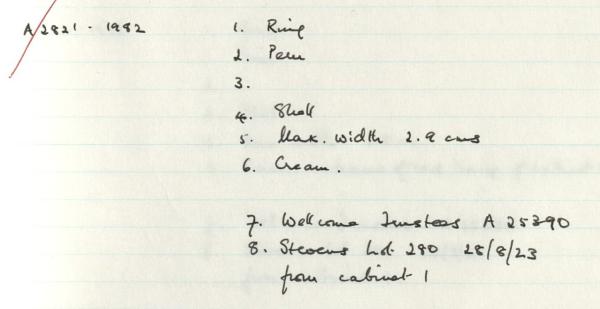 A 2821 - 1982 1. Ring
2. Peru
3.
4. Shell
5. Max. width 2.9 cms
6. Cream.
7. Wellcome Trustees A 25390
8. Stevens Lot 280 28/8/23
from cabinet 1